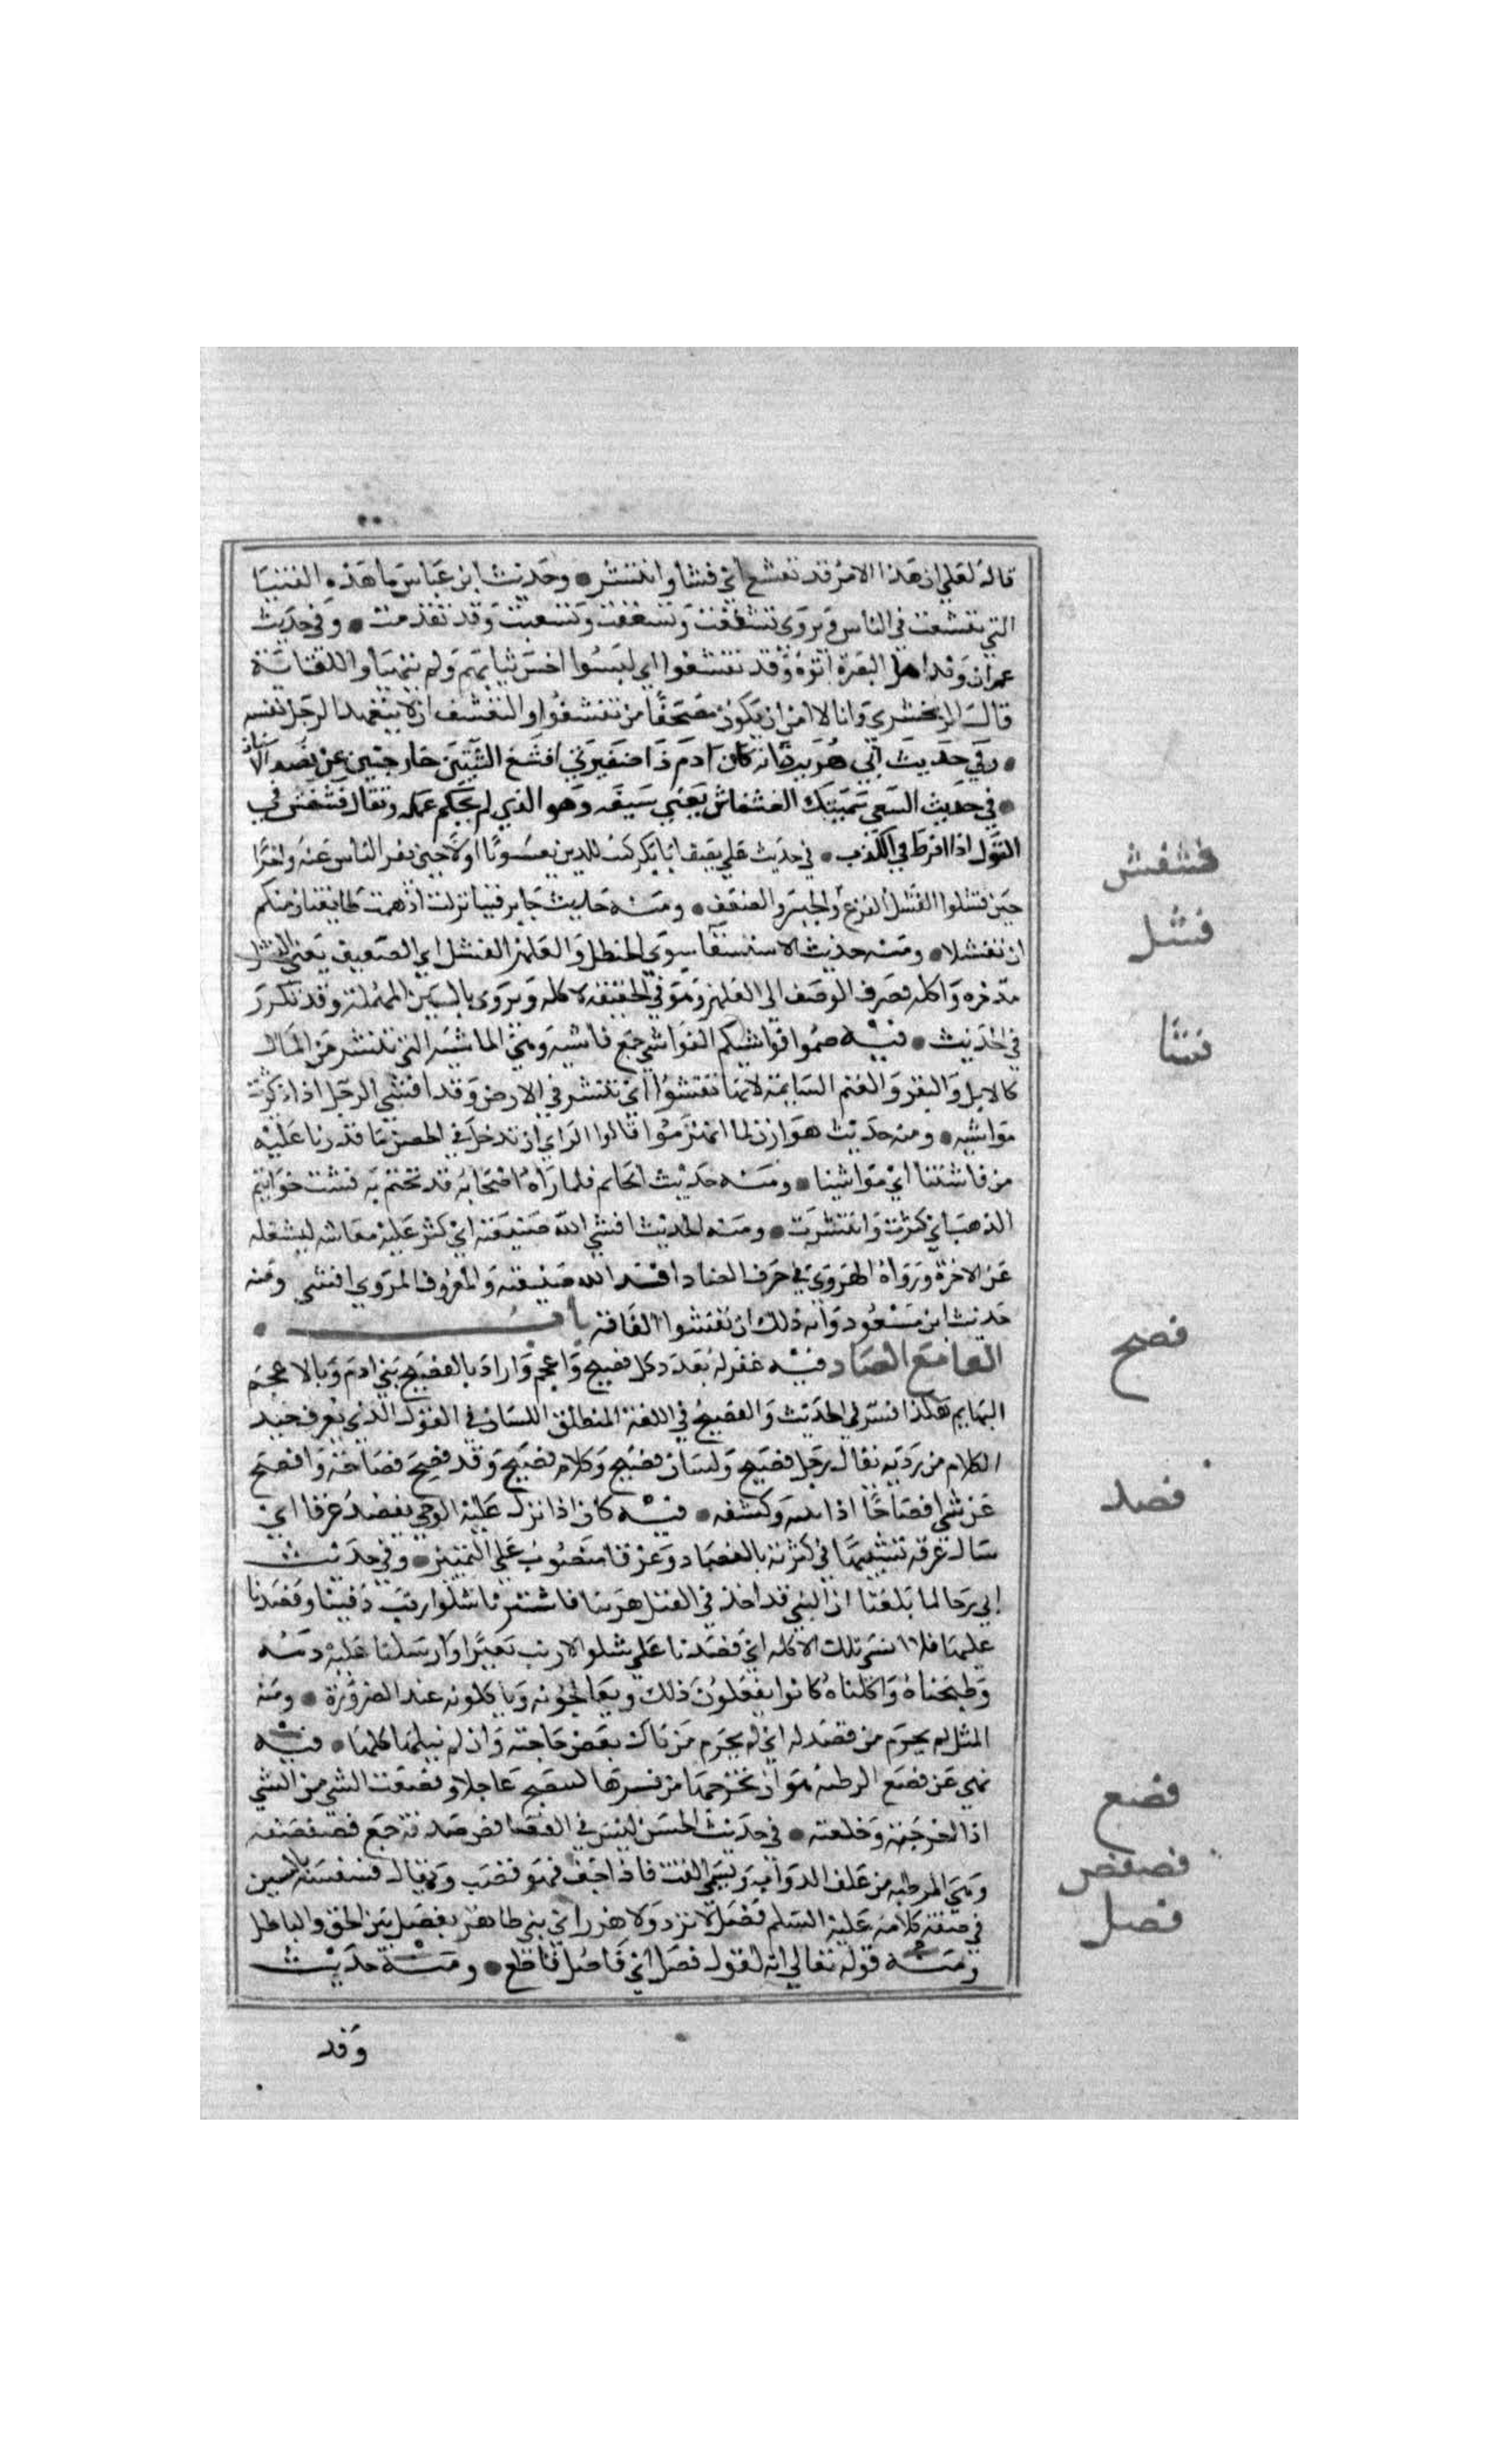 قاله لعلي ان هذا الامر قد تفشغ اي فشا وانتشر • وحديث ابن عباس ما هذه الفتيا
التي تفشغت في الناس ويروى تشققت وتشغفت وتشعبت وقد تقدمت • وفي حديث
عمران وفد اهل البصرة اتوه وقد تفشغوا اي لبسوا اخس ثيابهم ولم يتهياوا للقائه
قال الزمخشري وانا لا امن ان يكون مصحفا من تقشفوا والتقشف ان لا يتعهد الرجل نفسه
• وفي حديث ابي هريرة انه كان ادم ذا ضفيرتين افشغ الثنيتين خارجتين عن نضد الاسنان
• في حديث الشعبي سميتك الفشفاش يعني سيفه وهو الذي لم يحكم عمله ويقال فشفش في
القول اذا افرط في الكذب • في حديث علي يصف ابا بكر كنت للدين يعسوبا اولا حين نفر الناس عنه واخرا
حين فشلوا الفشل الفزع والجبن والضعف • ومنه حديث جابر فينا نزلت اذ همت طائفتان منكم
ان تفشلا • ومنه حديث الاستسقا سوى الحنظل والعلهز الفشل اي الضعيف يعني الفشل
مدخره واكله فصرف الوصف الى العلهز وهو في الحقيقة لاكله ويروى بالسين المهملة وقد تكرر
في الحديث • فيه ضموا فواشيكم الفواشي جمع فاشية وهي الماشية التي تنتشر من المال
كالابل والبقر والغنم السايمة لانها تفشوا اي تنتشر في الارض وقد افشى الرجل اذا كثرت
مواشيه • ومنه حديث هوازن لما انهزموا قالوا الراي ان ندخل في الحصن ما قدرنا عليه
من فاشيتنا اي مواشينا • ومنه حديث الخاتم فلما راه اصحابه قد تختم به فشت خواتيم
الذهب اي كثرت وانتشرت • ومنه الحديث افشى الله ضيعته اي كثر عليه معاشه ليشغله
عن الاخرة ورواه الهروي في حرف الضاد افسد الله ضيعته والمعروف المروي افشى ومنه
حديث ابن مسعود واية ذلك ان تفشوا الفاقة باب
الفا مع الصاد فيه غفر له بعدد كل فصيح واعجم واراد بالفصيح بني ادم وبالاعجم
البهايم هكذا فسر في الحديث والفصيح في اللغة المنطلق اللسان في القول الذي يعرف جيد
الكلام من رديه يقال رجل فصيح ولسان فصيح وكلام فصيح وقد فصح فصاحة وافصح
عن شي افصاحا اذا بينه وكشفه • فيه كان اذا نزل عليه الوحي يفصد عرقا اي
سال عرقه تشبيها في كثرته بالفصاد وعرقا منصوب على التمييز • وفي حديث
ابي رجا لما بلغنا ان النبي قد اخذ في القتل هربنا فاستثرنا شلو ارنب دفينا وفصدنا
عليها فلا انسى تلك الاكلة اي فصدنا على شلو الارنب بعيرا وارسلنا عليه دمه
وطبخناه واكلناه كانوا يفعلون ذلك ويعالجونه وياكلونه عند الضرورة • ومنه
المثل لم يحرم من فصد له اي لم يحرم من نال بعض حاجته وان لم ينلها كلها • فيه
نهى عن فصع الرطبة هو ان تخرجها من قشرها لتنضج عاجلا وفصعت الشي من الشي
اذا اخرجته وخلعته • في حديث الحسن ليس في الفصافص صدقة جمع فصفصة
وهي الرطبة من علف الدواب ويسمى القت فاذا جف فهو قضب ويقال فسفسة بالسين
في صفة كلامه عليه السلم فصل لا نزر ولا هذر اي بين ظاهر يفصل بين الحق والباطل
ومنه قوله تعالى انه لقول فصل اي فاصل قاطع • ومنه حديث
وفد
فشفش
فشل
فشا
فصح
فصد
فصع
فصفص
فصل